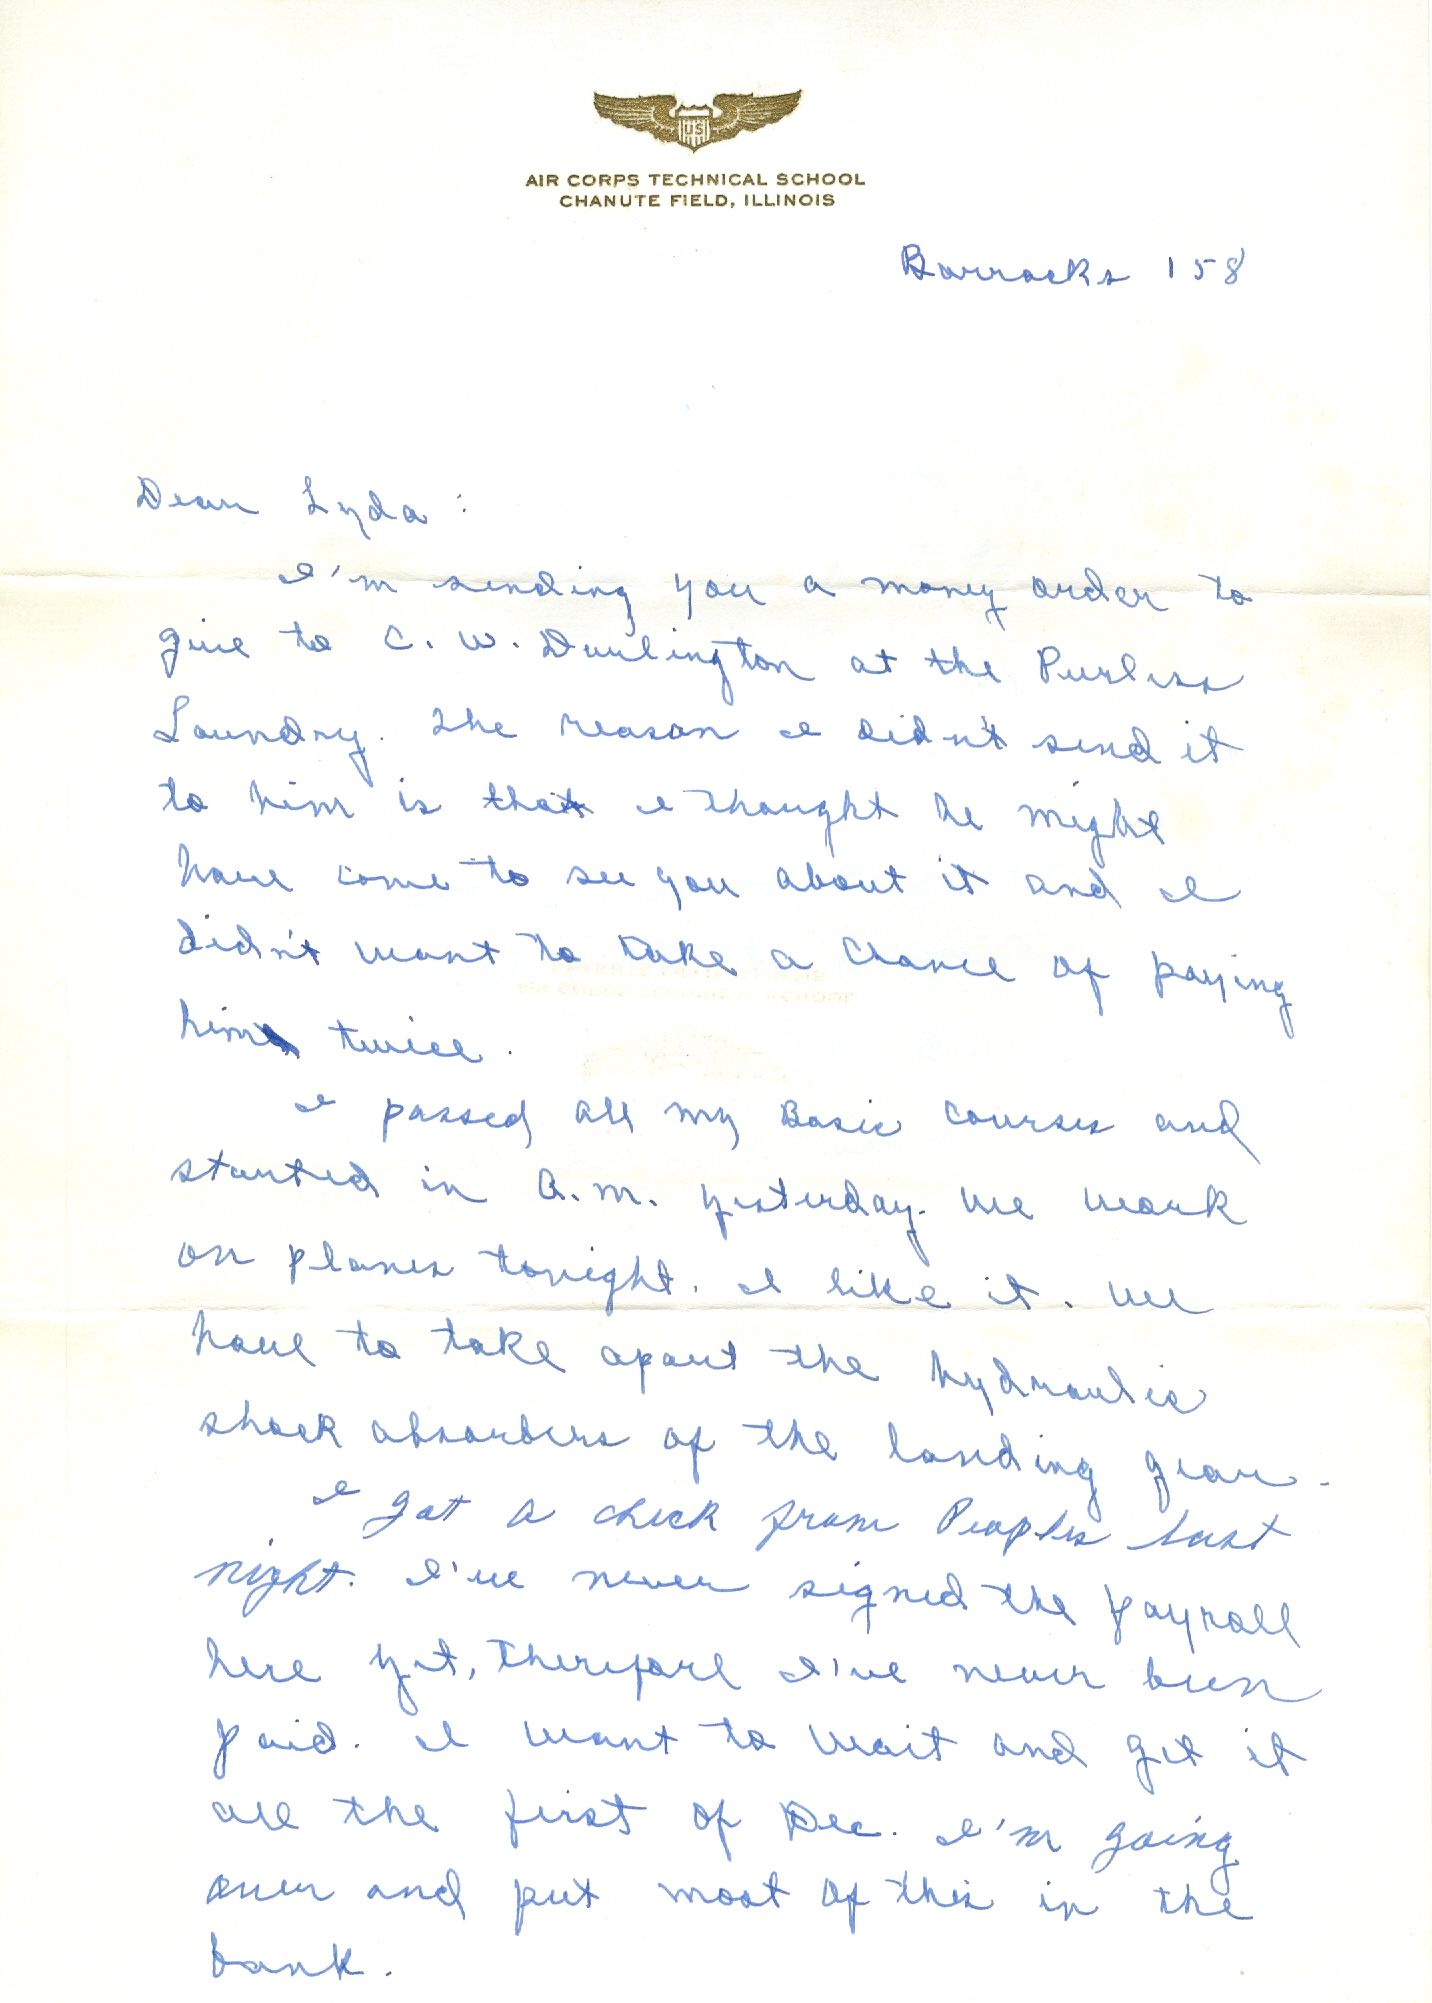 US
AIR CORPS TECHNICAL SCHOOL
CHANUTE FIELD, ILLINOIS
Barracks 158
Dear Lyda:
I'm sending you a money order to
give to C. W. Durlington at the Purless
Laundry. The reason I didn't send it
to him is that I thought he might
have come to see you about it and I
didn't want to take a chance of paying
him twice.
I passed all my Basic courses and
started in A.M. yesterday. We work
on planes tonight. I like it. We
have to take apart the hydraulic
shock absorbers of the landing gear.
I got a check from Peoples last
night. I've never signed the payroll
here yet, therefore I've never been
paid. I want to wait and get it
all the first of Dec. I'm going
over and put most of this in the
bank.